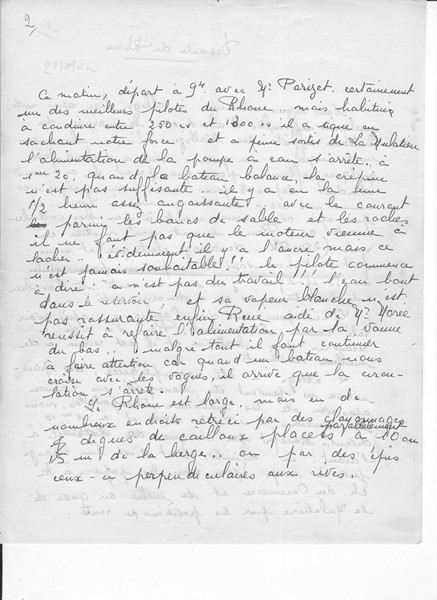 2/
Descente du Rhône
Ce matin, départ à 9h avec Mr Parizet.. certainement
un des meilleurs pilotes du Rhône.. mais habitué
à conduire entre 250 cv et 1800 cv il a tiqué en
sachant notre force et a peine sortis de La Mulatière
l'alimentation de la pompe à eau s'arrête.. à
1m20. quand le bateau balance, la crépine
n'est pas suffisante.. il y a eu la une
1/2 heure assez angoissante.. avec le courant
parmi les bancs de sable et les roches
il ne faut pas que le moteur vienne à
lacher.. évidemment il y a l'ancre mais ce
n'est jamais souhaitable!! le pilote commence
à dire: "ce n'est pas du travail"!! l'eau bout
dans le reservoir et sa vapeur blanche n'est
pas rassurante enfin René aidé de Mr
reussit à refaire l'alimentation par la vanne
du bas.. malgré tout il faut continuer
à faire attention car quand un bateau nous
croise avec les vagues, il arrive que la circu-
lation s'arrête.
Le Rhône est large, mais en de
nombreux endroits retréci par des clayonnages
& digues de cailloux placés parallèlement à 10 ou
15 m de la berge.. ou par des épis
ceux-ci perpendiculaires aux rives.